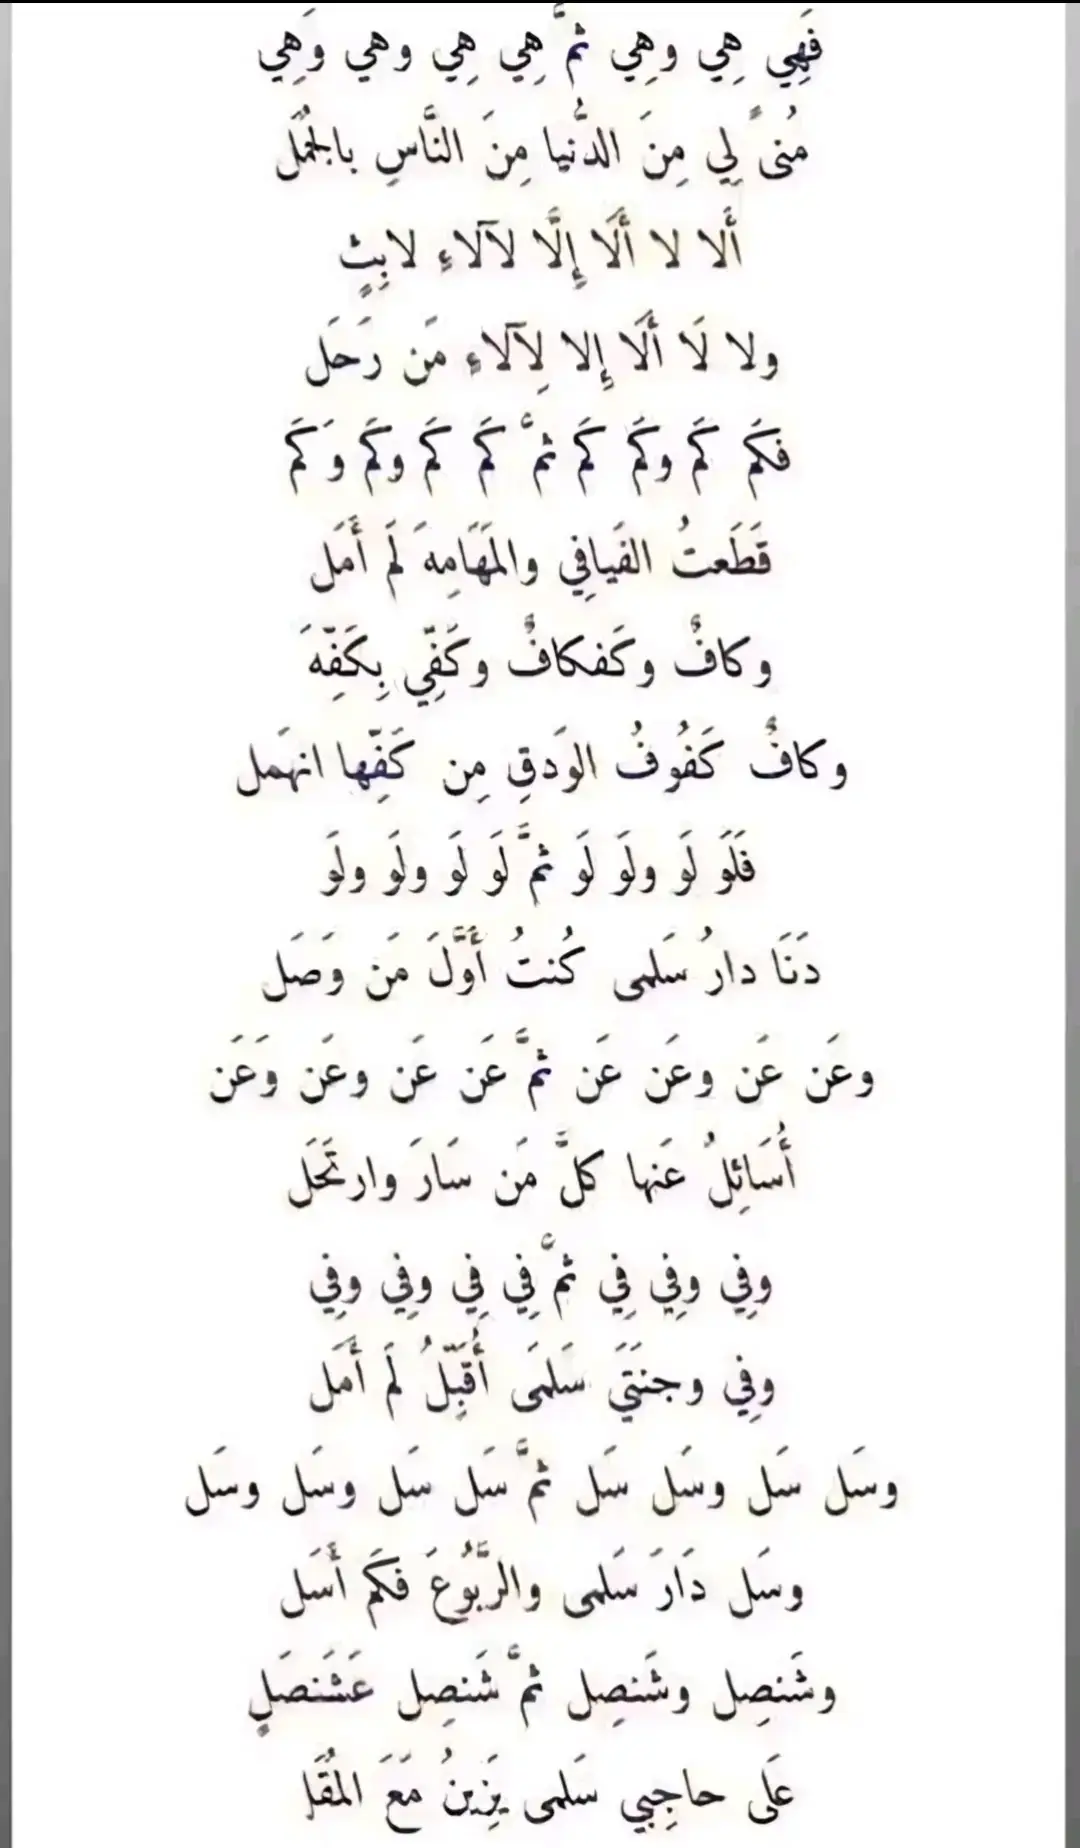 فَهِي هِي وهِي ثمَّ هِي هِي وهي وَهِي
مُنىً لِي مِنَ الدُّنيا مِنَ النَّاسِ بالجُمَل
أَلا لا أَلَا إِلَّا لآلاءِ لابِثٍ
ولا لَا أَلَا إِلا لِآلاءِ مَن رَحَل
فكَم كَم وكَم كَم ثمَّ كَم كَم وكَم وَكَم
قَطَعتُ الفَيافِي والمَهَامِهَ لَم أَمَل
وكافٌ وكَفكافٌ وكَفِّي بِكَفِّهَ
وكافٌ كَفُوفُ الوَدقِ مِن كَفِّها انهَمل
فَلَو لَو ولَو لَو ثمَّ لَو لَو ولَو ولَو
دَنَا دارُ سَلمى كُنتُ أَوَّلَ مَن وَصَل
وعَن عَن وعَن عَن ثمَّ عَن عَن وعَن وَعَن
أُسَائِلُ عَنها كلَّ مَن سَارَ وارتَحَل
وفِي وفِي فِي ثمَّ فِي فِي وفِي وفِي
وفِي وجنَتَي سَلمَى أُقَبِّلُ لَم أَمَل
وسَل سَل وسَل سَل ثمَّ سَل سَل وسَل وسَل
وسَل دَارَ سَلمى والرَّبُوعَ فكَم أَسَل
وشَنصِل وشَنصِل ثمَّ شَنصِل عَشَنصَلٍ
عَلى حاجِبي سَلمى يَزِينُ مَعَ المُقَل